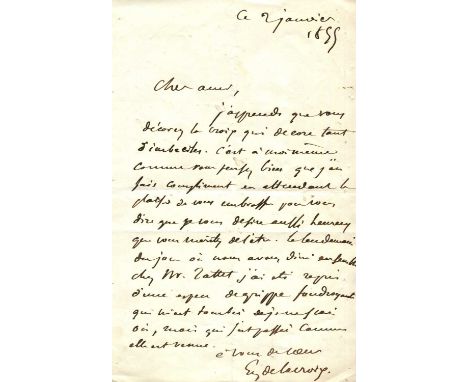 Ce 2 janvier
1855
Cher ami,
j'apprends que vous
décorez la croix qui décore tant
d'imbéciles. C'est à moi même
comme vous pensez bien que j'en
fais compliment en attendant le
plaisir de vous embrasser pour vous
dire que je vous désire aussi heureux
que vous méritez de l'être. Le lendemain
du jour où nous avons diné ensemble
chez Mr. Tattet j'ai été repris
d'une espèce de grippe foudroyante
qui m'est tombée de je ne sais
où, mais qui s'est passée comme
elle est venue.
à vous de coeur
Eug delacroix